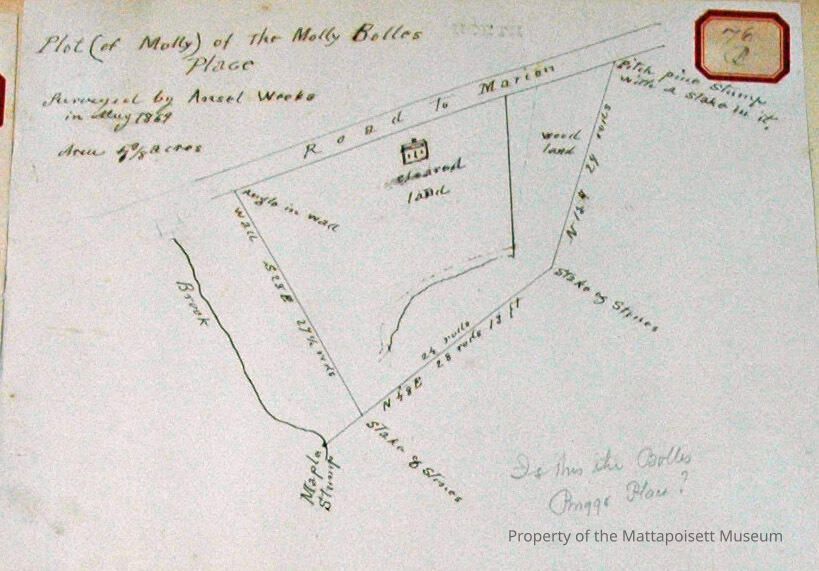 Plot (of Molly) of The Molly Bolles
Place
Surveyed by Ansel Weeks
in May 1869
Area acres
76
Road to Marion
Pitch pine Stump
with a stake in it.
wood
land
cleared
land
Angle in wall
wall S28E 27½ rods
N12W 24 rods
Brook
Stake & Stones
24 rods
N48E 28 rods 13 ft
Stake & Stones
Maple
Stump
Is this the Bolles
Briggs Place?
Property of the Mattapoisett Museum